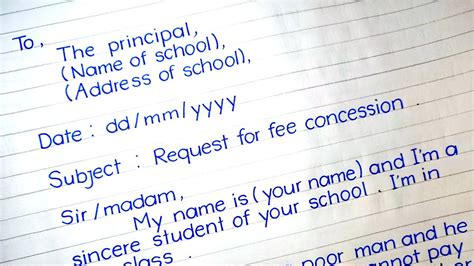 To,
The principal,
(Name of school),
(Address of school),
Date : dd/mm/yyyy
Subject : Request for fee concession .
Sir/madam,
My name is ( your name) and I'm a
sincere student of your school . I'm in
class
poor man and he
cannot pay